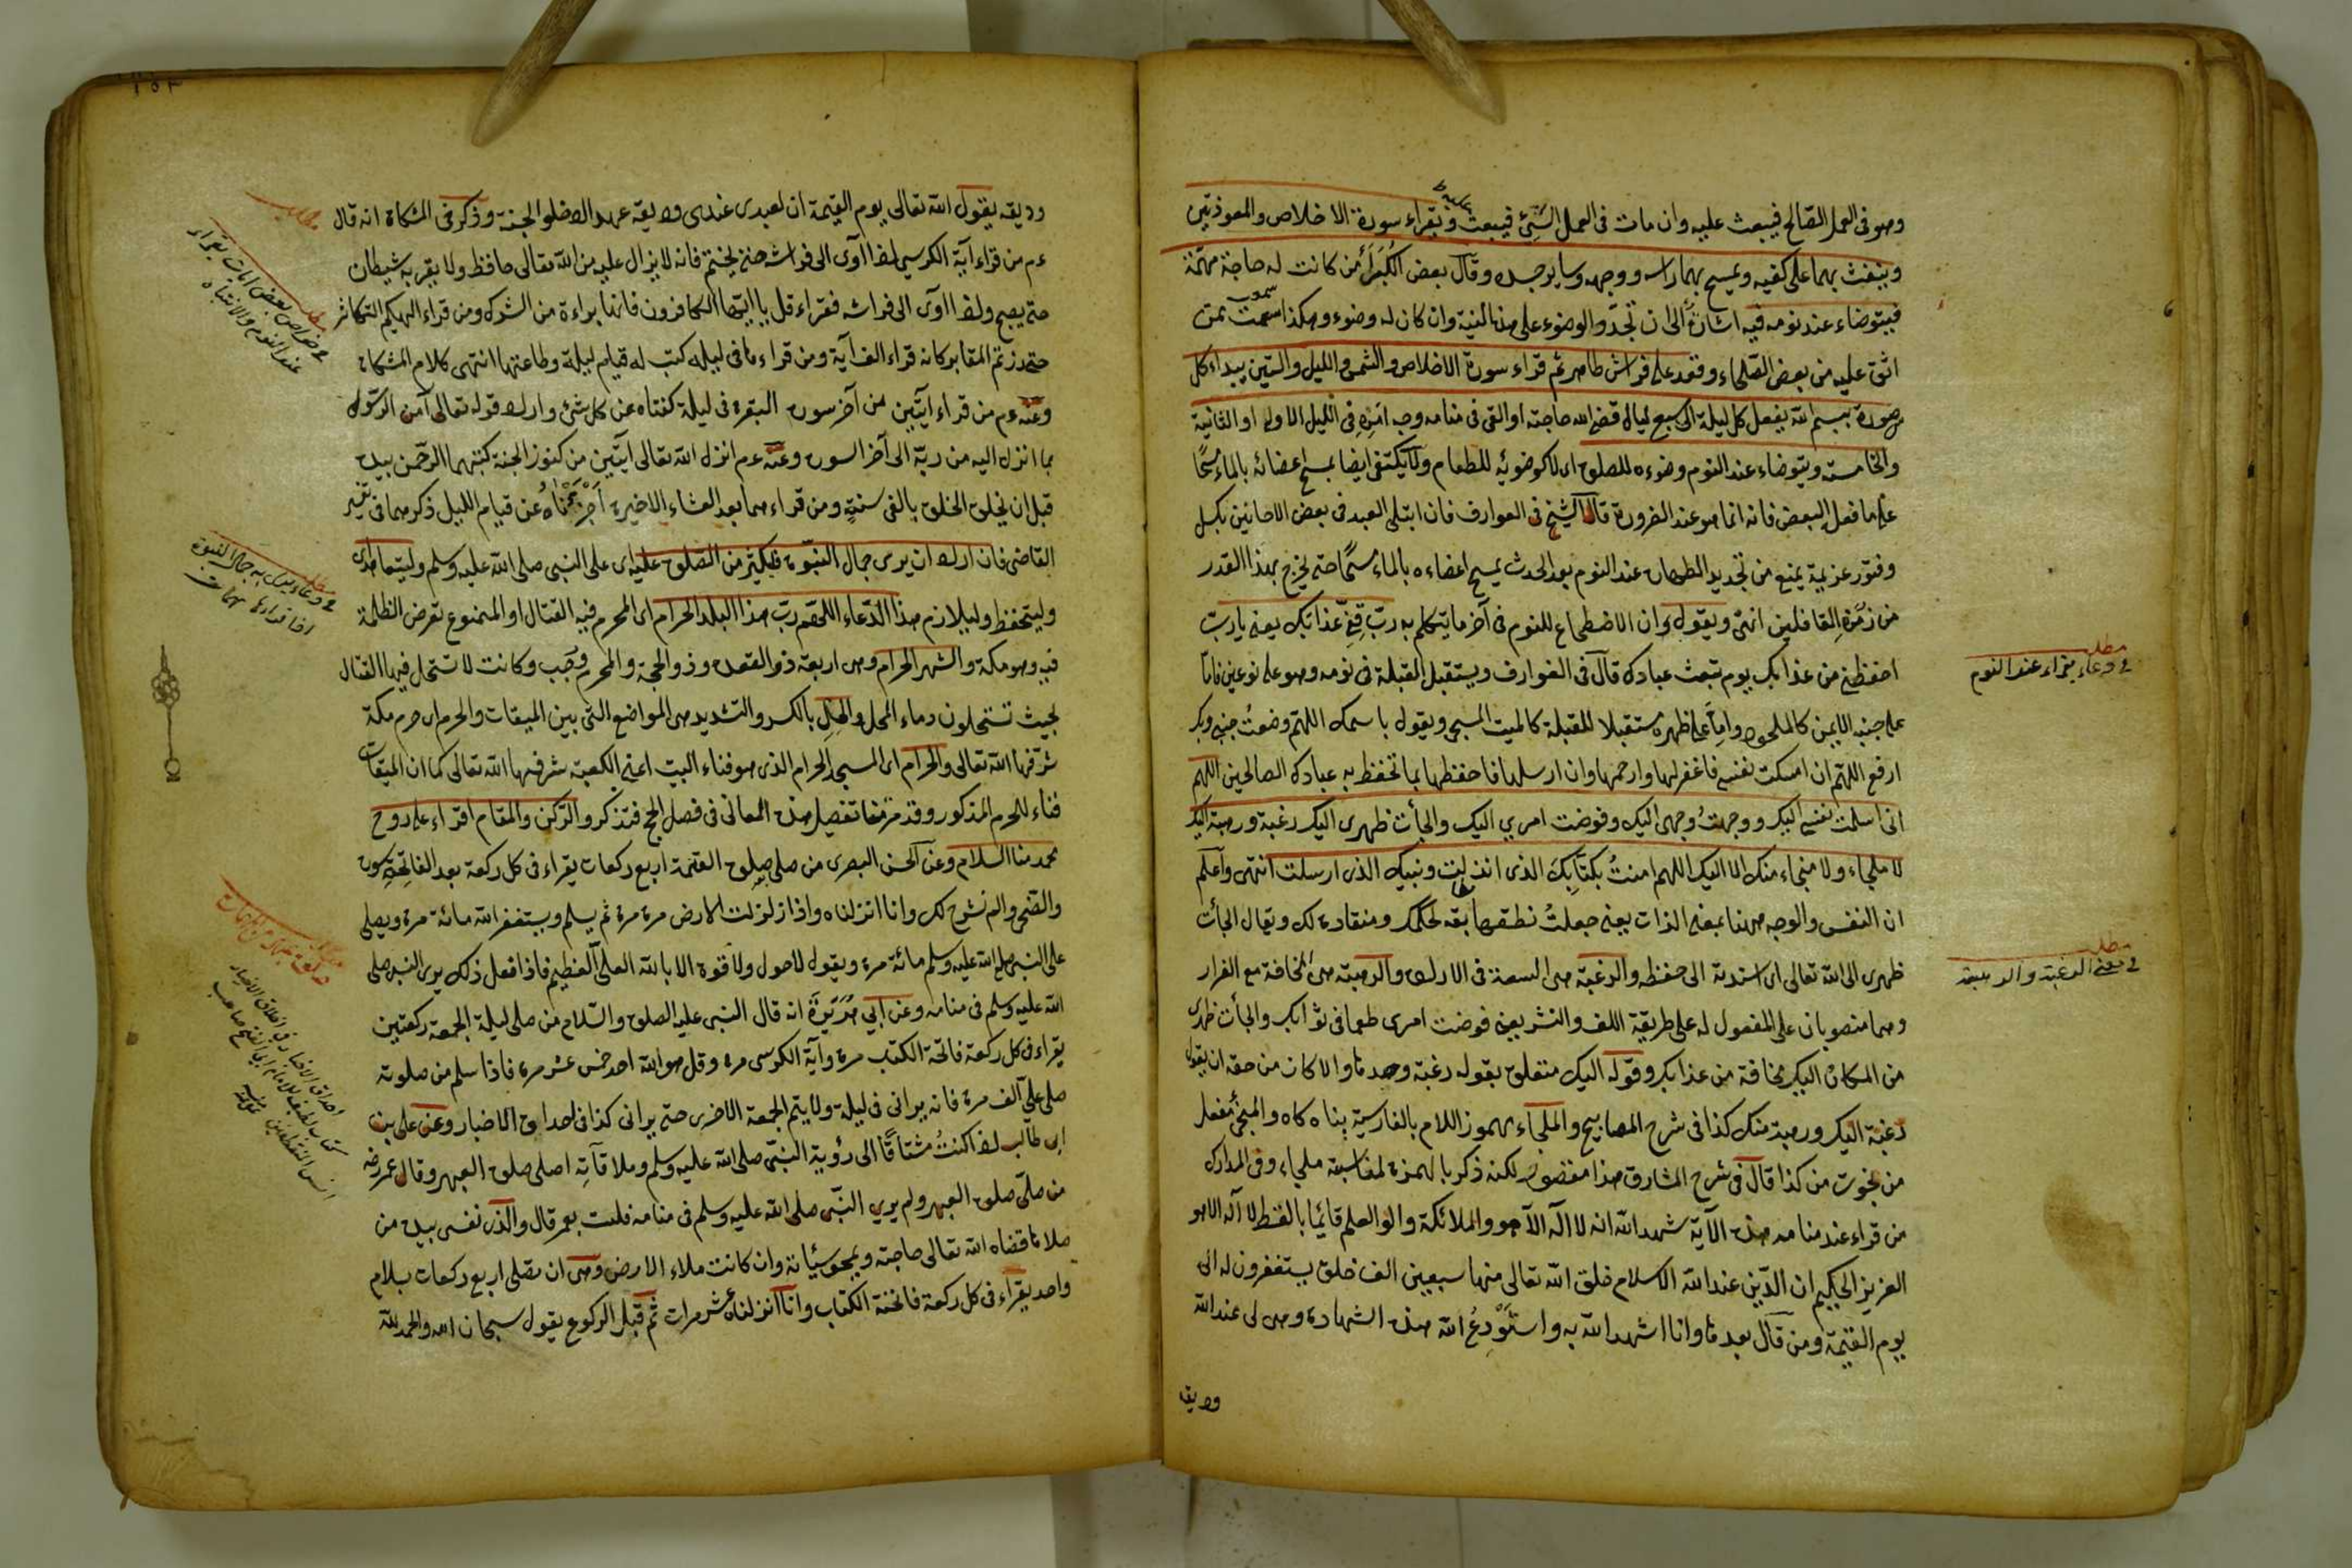 وهو فى العمل الصّالح فيبعث عليه وان مات فى العمل السّيئ فيبعث عليه ويقراء سورة الاخلاص والمعوذتين
وينفث بهما على كفيه ويمسح بهما راسه ووجهه وساير جسده وقال بعض الكُبَراءِ من كانت له حاجة مهمّة
فيتوضاء عند نومه فيه اشارة الى ان تجدّد الوضوء على هذه النية وان كان له وضوء وهكذا سمعت ممن
اثق عليه من بعض الصّلحاء وقعد على فراش طاهر ثم قراء سورة الاخلاص والشمس والليل والتين يبداء كل
سورة ببسم الله يفعل كل ليلة الى سبع ليال قضى الله حاجته او القى فى منامه وجه امْرِهِ فى الليل الاولى او الثانية
والخامسة ويتوضاء عند النوم وضوءه للصلوة اى لا كوضوئه للطعام ولا يكتفى ايضا بمسح اعضائه بالماء مسحًا
على ما فعل البعض فانه انما هو عند الضرورة قال الشيخ فى العوارف فان ابتلى العبد فى بعض الاحانين بكسل
وفتور عزيمة يمنع من تجديد الطهارة عند النوم بعد الحدث يمسح اعضاءه بالماء مسحًا حتى يخرج بهذا القدر
من زمرة الغافلين انتهى ويقول اوان الاضطجاع للنوم فى آخر ما يتكلم به ربّ قِنِى عذابك يعنى يا ربّ
احفظنى من عذابك يوم تبعث عبادك قال فى العوارف ويستقبل القبلة فى نومه وهو على نوعين فامّا
على جنبه الايمن كالملحود وامّا على ظهره مستقبلا للقبلة كالميت المسجى ويقول باسمك اللهّم وضعتُ جنبى وبك
ارفع اللهّم ان امسكت نفسى فاغفر لها وارحمها وان ارسلها فاحفظها بما تحفظ به عبادك الصالحين اللهم
انى اسلمت نفسى اليك ووجهتُ وجهى اليك وفوضت امرى اليك والجأت ظهرى اليك رغبة ورهبة اليك
لا ملجاء ولا منجاء منك الا اليك اللهم امنتُ بكتابِكَ الذى انزلت ونبيك الذى ارسلت انتهى واعلم
ان النفس والوجه ههنا بمعنى الذات يعنى جعلتُ لحكمك ومنقادة لك ويقال الجأت
ظهرى الى الله تعالى اى اسندته الى حفظه والرغبة هى السعة فى الارادة والرهبة هى المخافة مع الفرار
وهما منصوبان على المفعول له على طريقة اللف والنشر يعنى فوضت امرى طمعا فى ثوابك والجأت ظهرى
من المكاره اليك مخافة من عذابك وقوله اليك متعلق بقوله رغبة وحدها والا كان من حقه ان يقول
رغبة اليك ورهبة منك كذا فى شرح المصابيح والملجاء بهموز اللام بالفارسية پناه كاه والمنجئ مفعل
من نجوت من كذا قال فى شرح المشارق هذا مقصور لكنه ذكر بالهمزة لمناسبة ملجاء وفى المدارك
من قراء عند منامه هذه الآية شهد الله انه لا اله الا هو والملائكة والوا العلم قائما بالقسط لا اله الا هو
العزيز الحكيم ان الدّين عند الله الاسلام خلق الله تعالى منها سبعين الف خلق يستغفرون له الى
يوم القيمة ومن قال بعدها وانا اشهد الله به واستَوْدِعُ الله هذه الشهادة وهى لى عند الله
وديقه
مطلب
فى دعاء يقراء عند النوم
مطلب
فى معنى الرغبة والرهبة
وديقه يقول الله تعالى يوم القيمة ان لعبدى عندى وديعة عهد ادخلوا الجنة وذكر فى المشكاة انه قال
ءم من قراء آية الكرسى اذا آوى الى فراشه حتى يختم فانه لا يزال عليه من الله تعالى حافظ ولا يقربه شيطان
حتى يصبح واذا اوى الى فراشه فقراء قل يا ايّها الكافرون فانها براءة من الشرك ومن قراء الهيكم التكاثر
حتى زرتم المقابر كانه قراء الف آية ومن قراء مائة فى ليله كتب له قيام ليلة وطاعتها انتهى كلام المشكاة
وعنه ءم من قراء ايتين من آخر سورة البقرة فى ليلة كفتاه عن كل شئ واراد قوله تعالى آمن الرسول
بما انزل اليه من ربّه الى آخر السورة وعنه ءم انزل الله تعالى ايتين من كنوز الجنة كتبهما الرحمن بيده
قبل ان يخلق الخلق بالفى سنةٍ ومن قراء هما بعد العشاء الاخيرة اجزءتاه عن قيام الليل ذكرهما فى تفسير
القاضى فان اراد ان يرى جمال النبوة فليكثر من الصلوة عليه اى على النبى صلى الله عليه وسلم وليتعاهد اى
وليتحفظ وليلازم هذا الدّعاء اللهّم ربّ هذا البلد الحرام اى المحرم فيه القتال او الممنوع تعرض الظلمة
فيه وهو مكة والشهر الحرام وهى اربعة ذو القعدة وذو الحجة والمحرم ورجب وكانت لا تستحل فيها القتال
بحيث تستحلون دماء المحل والحِلِّ بالكسر والتشديد هى المواضع التى بين الميقات والحرم اى حرم مكة
شرفها الله تعالى والحرام اى المسجد الحرام الذى هو فناء البيت اعنى الكعبة شرفها الله تعالى كما ان الميقات
فناء للحرم المذكور وقد مر منا تفصيل هذه المعانى فى فصل الحج فتذكر والركن والمقام اقراء على روح
محمد منا السلام وعن الحسن البصرى من صلى صلوة العتمة اربع ركعات يقراء فى كل ركعة بعد الفاتحة سورة
والضحى والم نشرح لك وانا انزلناه واذا زلزلت الارض مرة مرة ثم يسلم ويستغفر الله مائة مرة ويصلى
على النبى صلى الله عليه وسلم مائة مرة ويقول لا حول ولا قوة الا بالله العلى العظيم فاذا فعل ذلك يرى النبى صلى
الله عليه وسلم فى منامه وعن ابي هُرَيْرَةَ انه قال النبى عليه الصلوة والسّلام من صلى ليلة الجمعة ركعتين
يقراء فى كل ركعة فاتحة الكتب مرة وآية الكرسى مرة وقل هو الله احد خمس عشر مرة فاذا سلم من صلوته
صلى علىّ الف مرة فانه يرانى فى ليلة ولا يتم الجمعة الاخرى حتى يرانى كذا فى احداق الاخبار وعن على بن
ابى طالب اذا كنتُ مشتاقًا الى رؤية النبىّ صلى الله عليه وسلم وملاقاتِهِ اصلى صلوة العبهر وقال عمر رضه
من صلّى صلوة العبهر ولم يرى النبّى صلى الله عليه وسلم فى منامه فلست بعمر قال والذى نفسى بيده من
صلاها قضاه الله تعالى حاجته ويمحو سيئاته وان كانت ملاء الارض وهى ان تصلى اربع ركعات بسلام
واحد يقراء فى كل ركعة فاتحة الكتاب وانا انزلناه عشر مرات ثم قبل الركوع يقول سبحان الله والحمد لله
مطلب
فى خواص بعض ايات يقراء
عند النوم والانتباه
مطلب
فى دعاء يرى به جمال النبوة